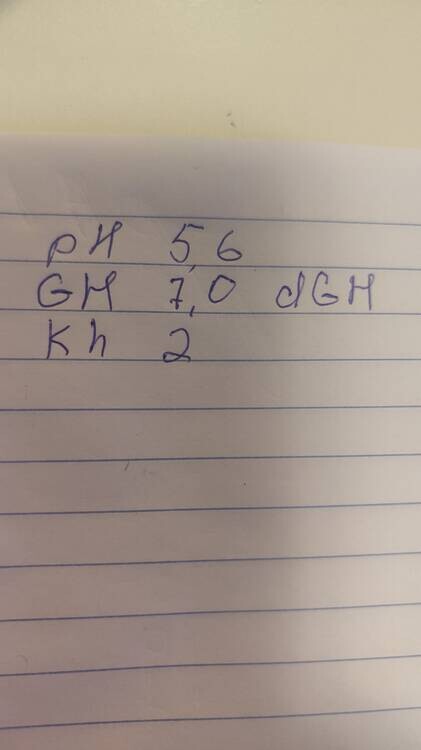 pH 5,6
GH 7,0 dGH
Kh 2